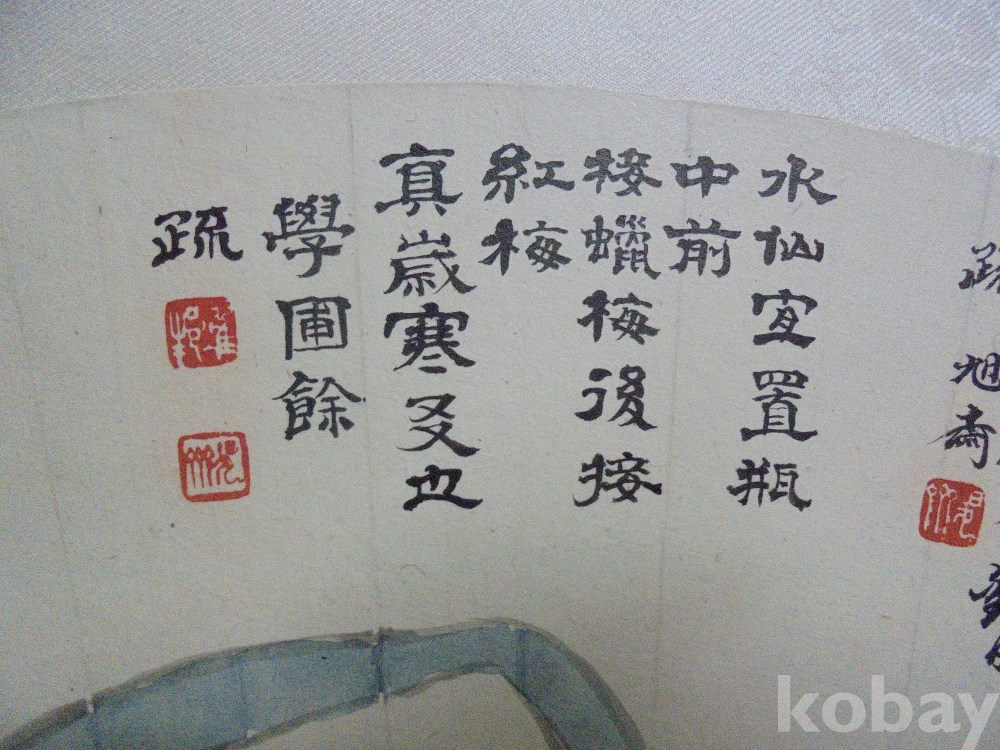 水仙宜置瓶
中前
接蠟梅後接
紅梅
真歲寒友也
學圃餘
疏
旭齋
kobay